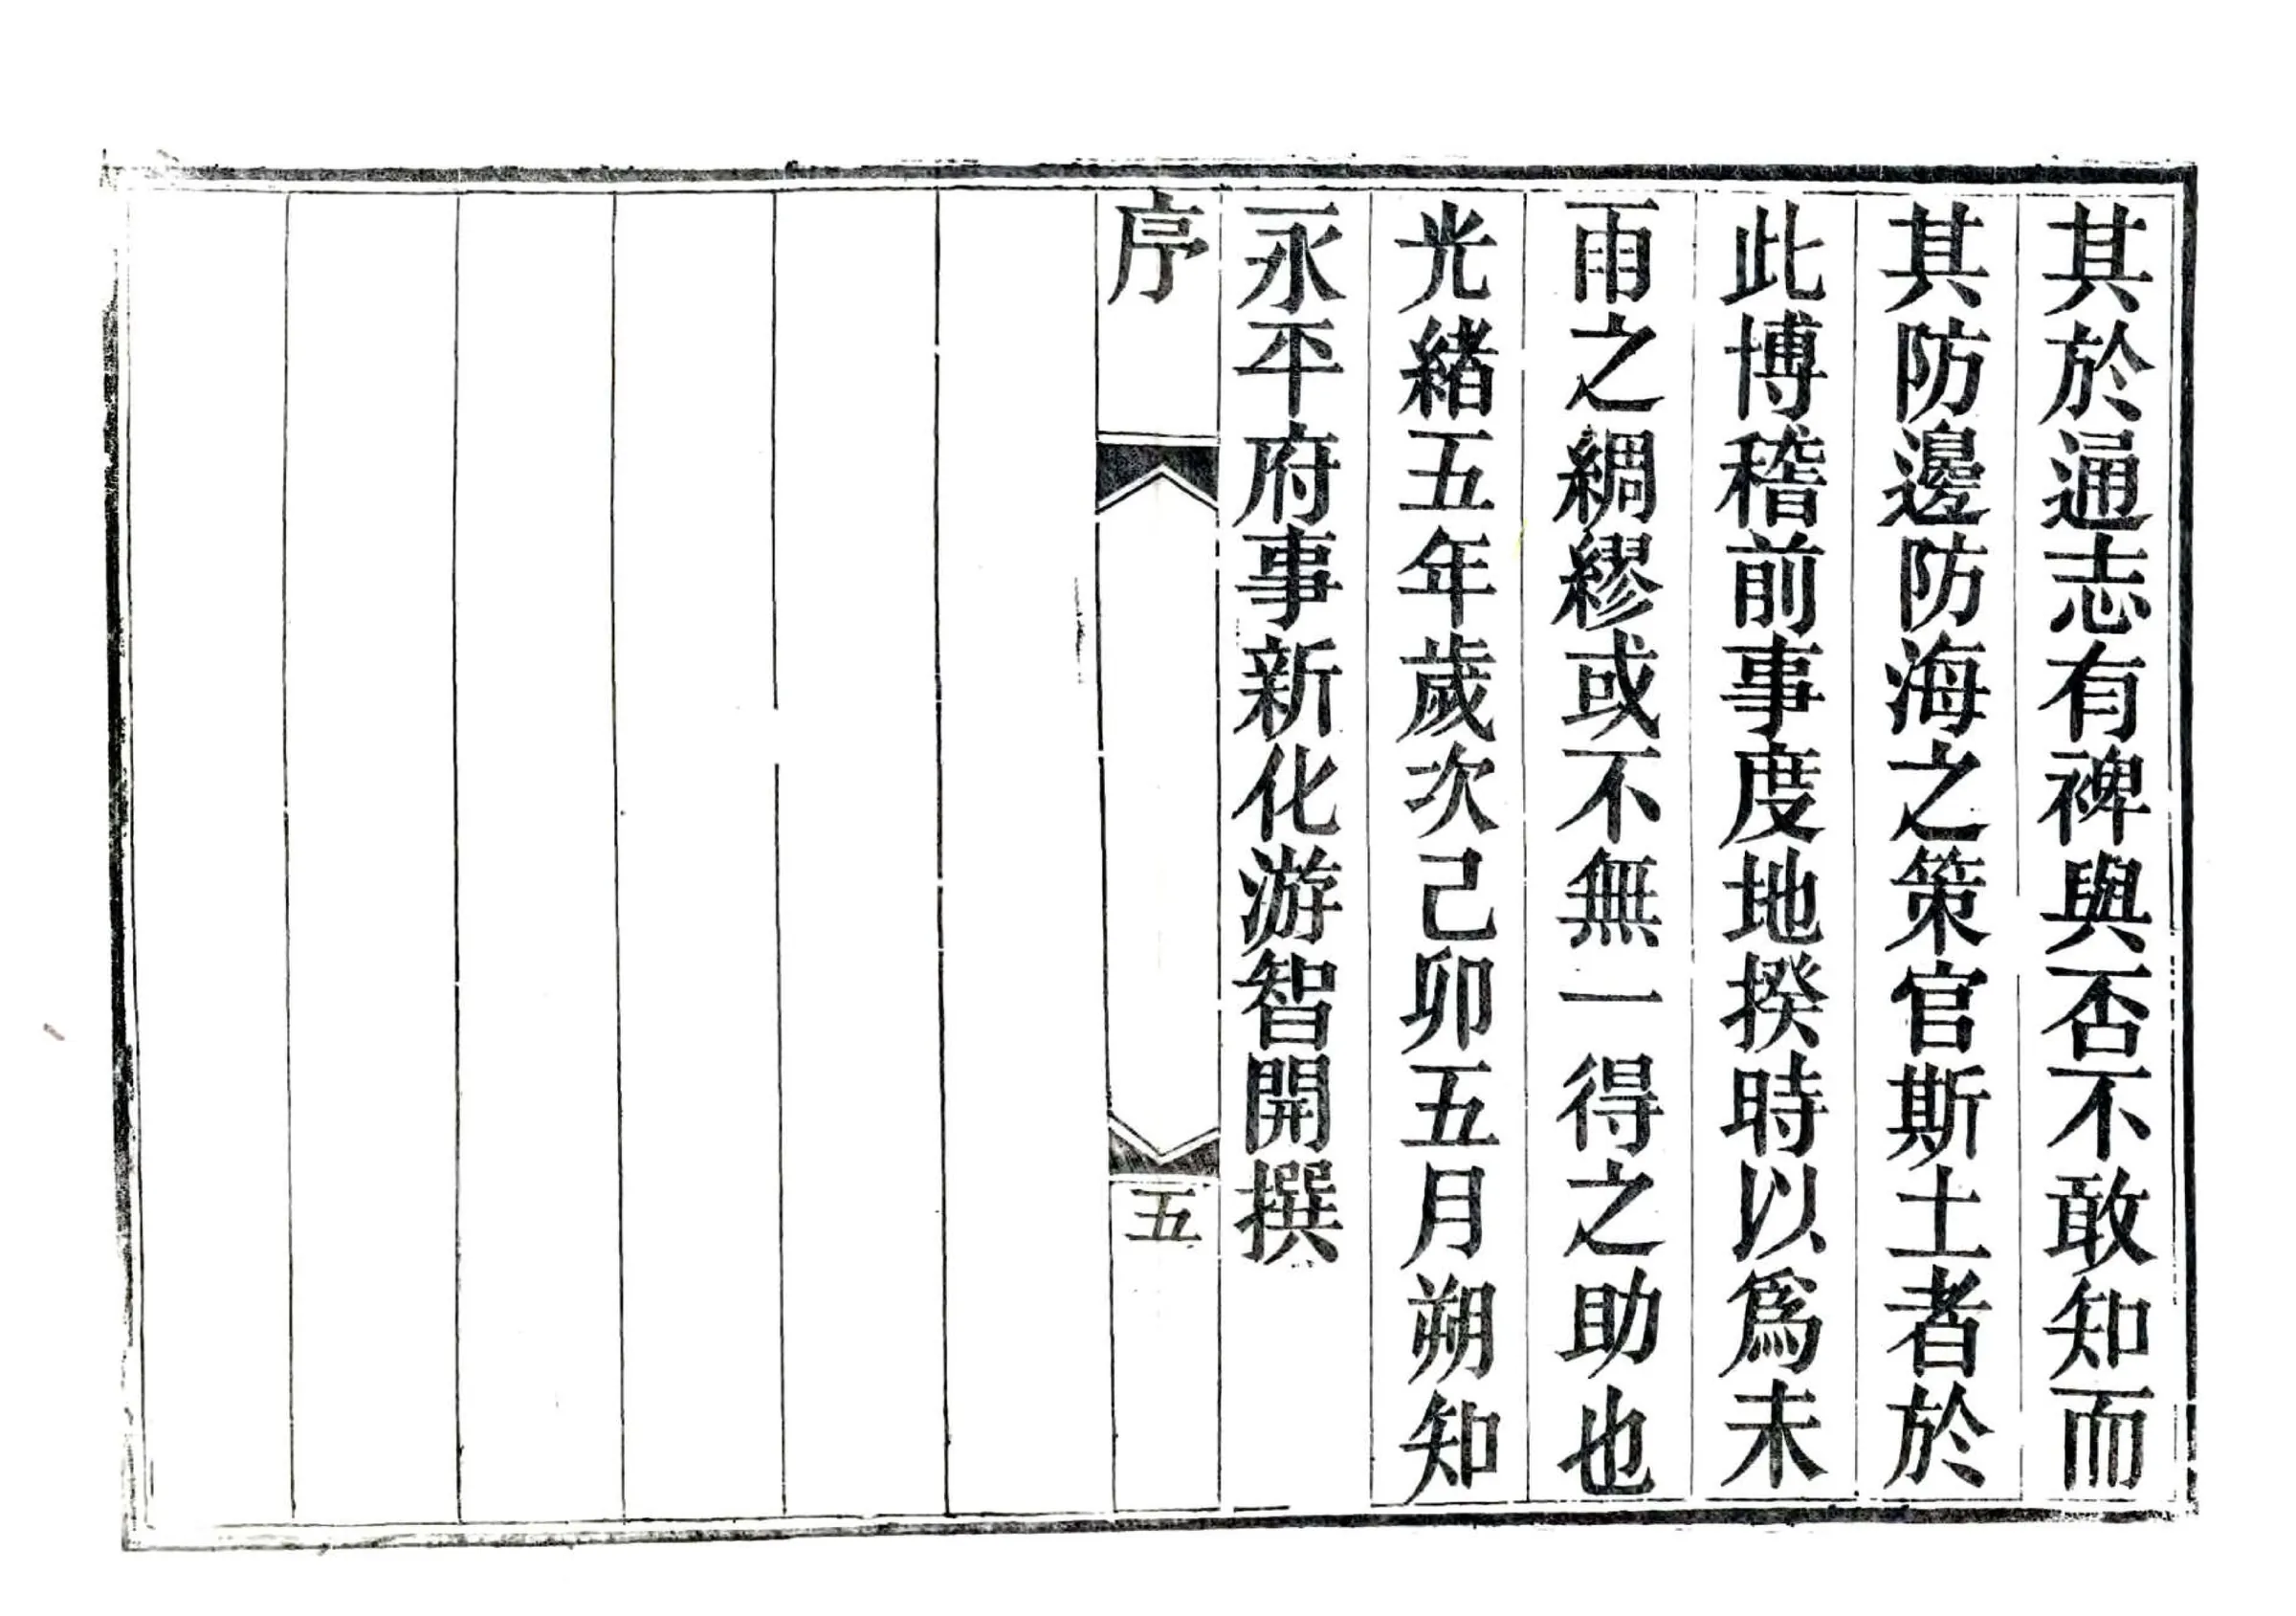 其於通志有裨與否不敢知而
其防邊防海之策官斯土者於
此博稽前事度地揆時以爲未
雨之綢繆或不無一得之助也
光緒五年歲次己卯五月朔知
永平府事新化游智開撰
序
五